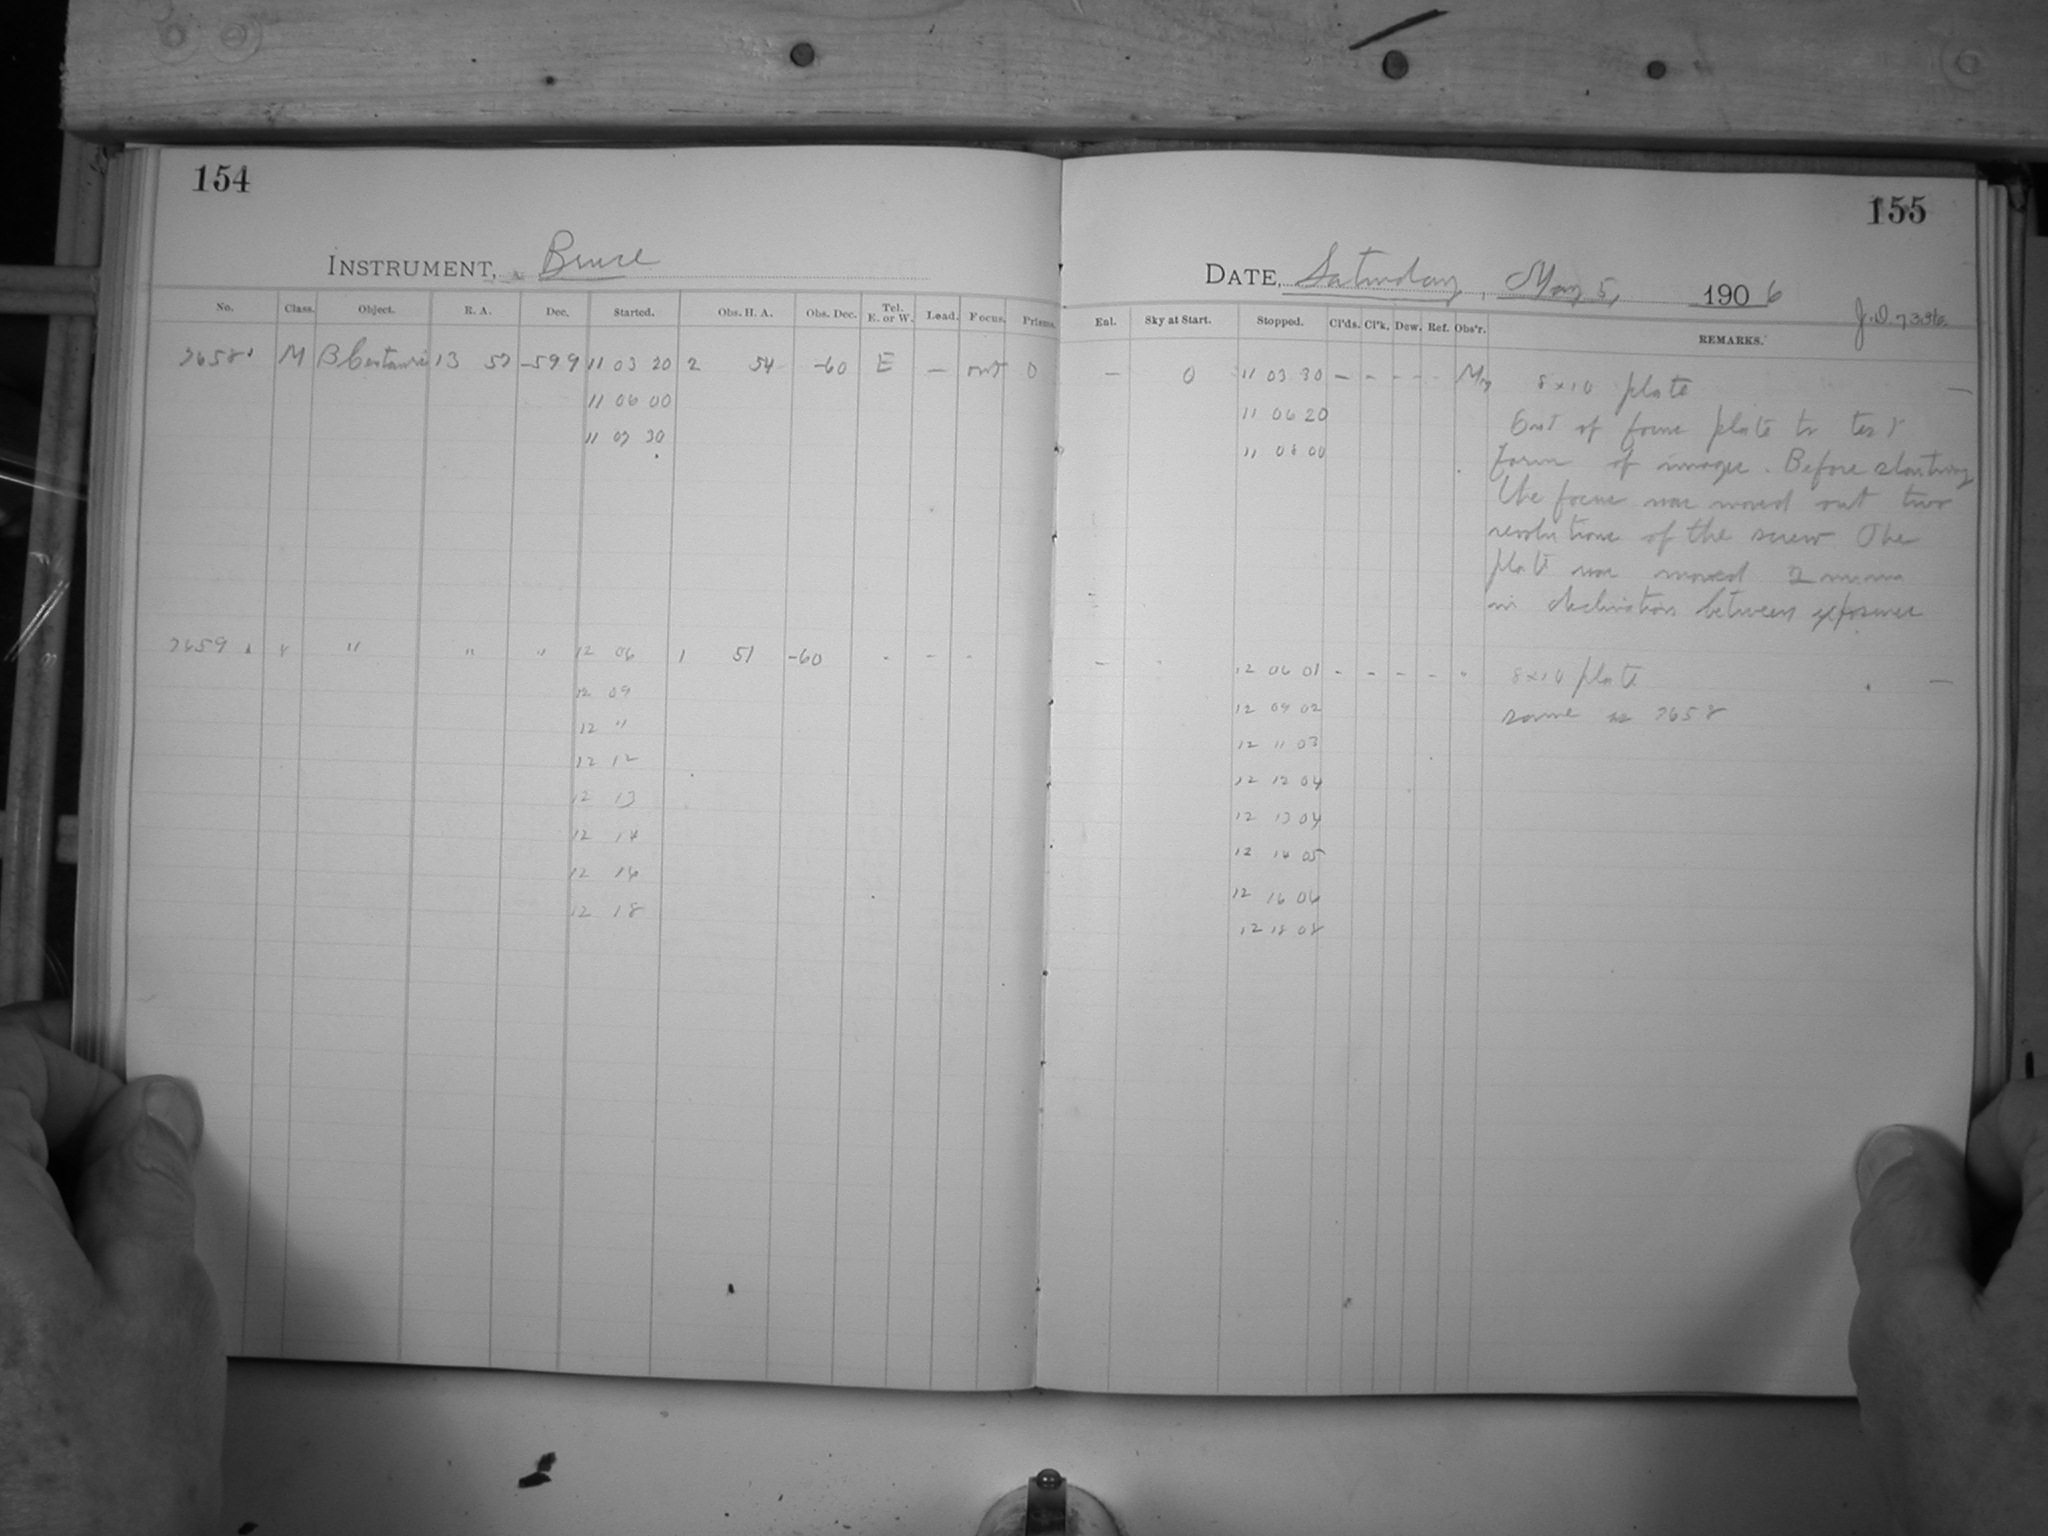 154
155
INSTRUMENT, Bruce
DATE, Saturday, May 5, 1906
J.D. 7336
No. Class. Object. R. A. Dec. Started. Obs. H. A. Obs. Dec. Tel. E. or W. Lead. Focus. Prisms.
Enl. Sky at Start. Stopped. Cl'ds. Cl'k. Dew. Ref. Obs'r. REMARKS.
7658 M B Centauri 13 57 -59 9 11 03 20 2 54 -60 E — out 0 — 0 11 03 30 - - - - 8x10 plate —
11 06 00 11 06 20 Out of focus plate to test
11 07 30 11 08 00 form of images. Before starting
the focus was moved out two
revolutions of the screw. The
plate was moved 2 mm
in declination between exposures
7659 " " " " 12 06 1 51 -60 - - - - 12 06 01 - - - - " 8x10 plate —
12 09 12 09 02 same as 7658
12 " 12 11 03
12 12 12 12 04
12 13 12 13 04
12 14 12 14 05
12 16 12 16 06
12 18 12 18 08